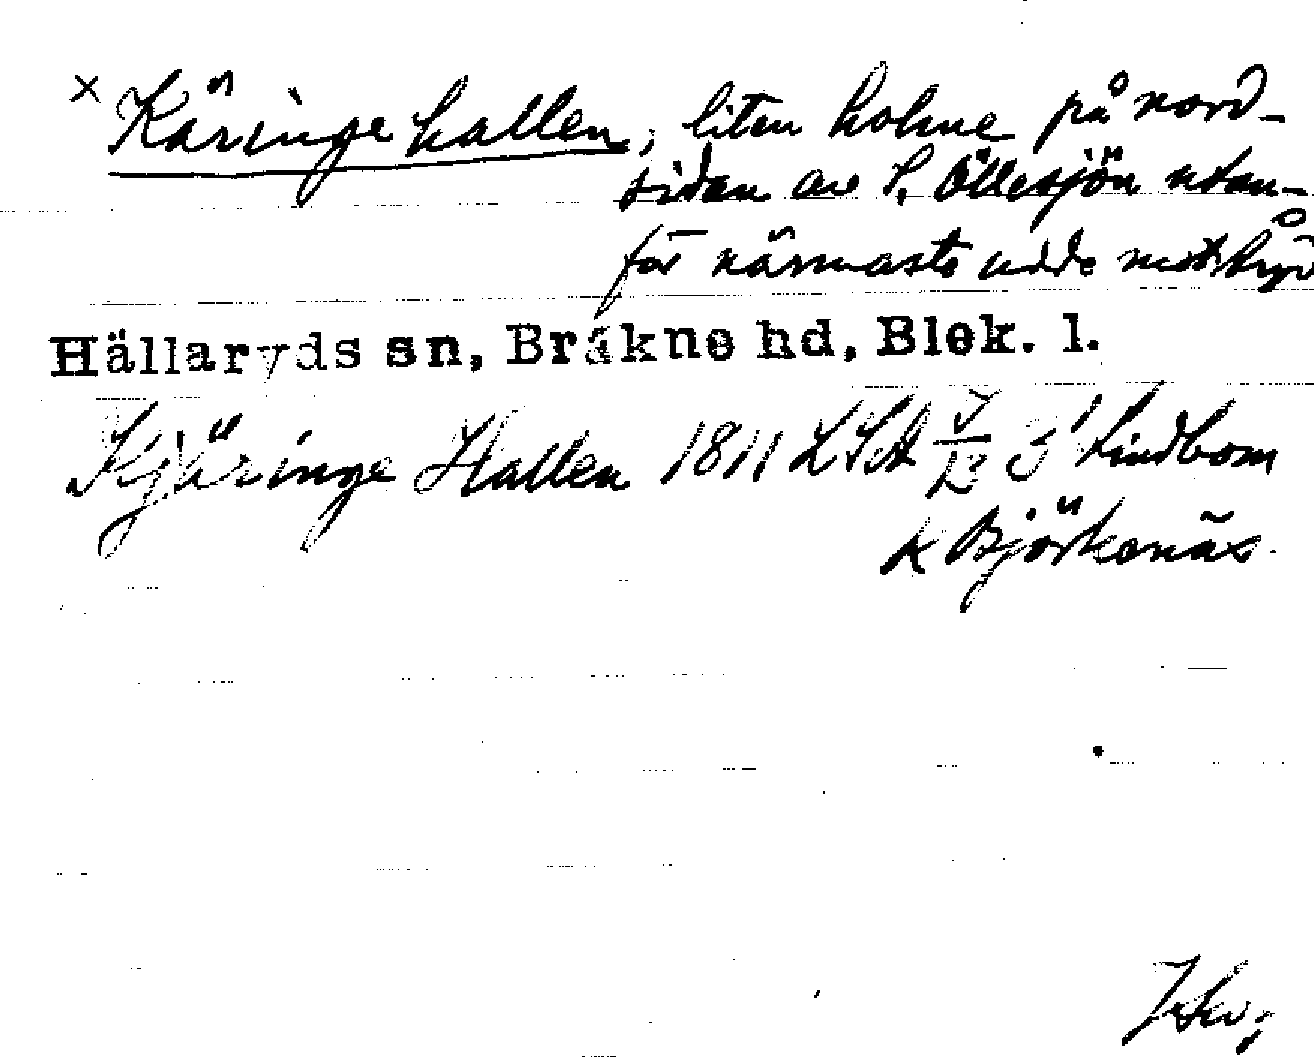 × Käringehallen, liten holme på nord-
sidan av S. Öllesjön utan-
för närmaste udde mot
Hällaryds sn, Bräkne hd, Blek. l.
Kjäringe Hallen 1811 LSA Lindbom
k Björkenäs.